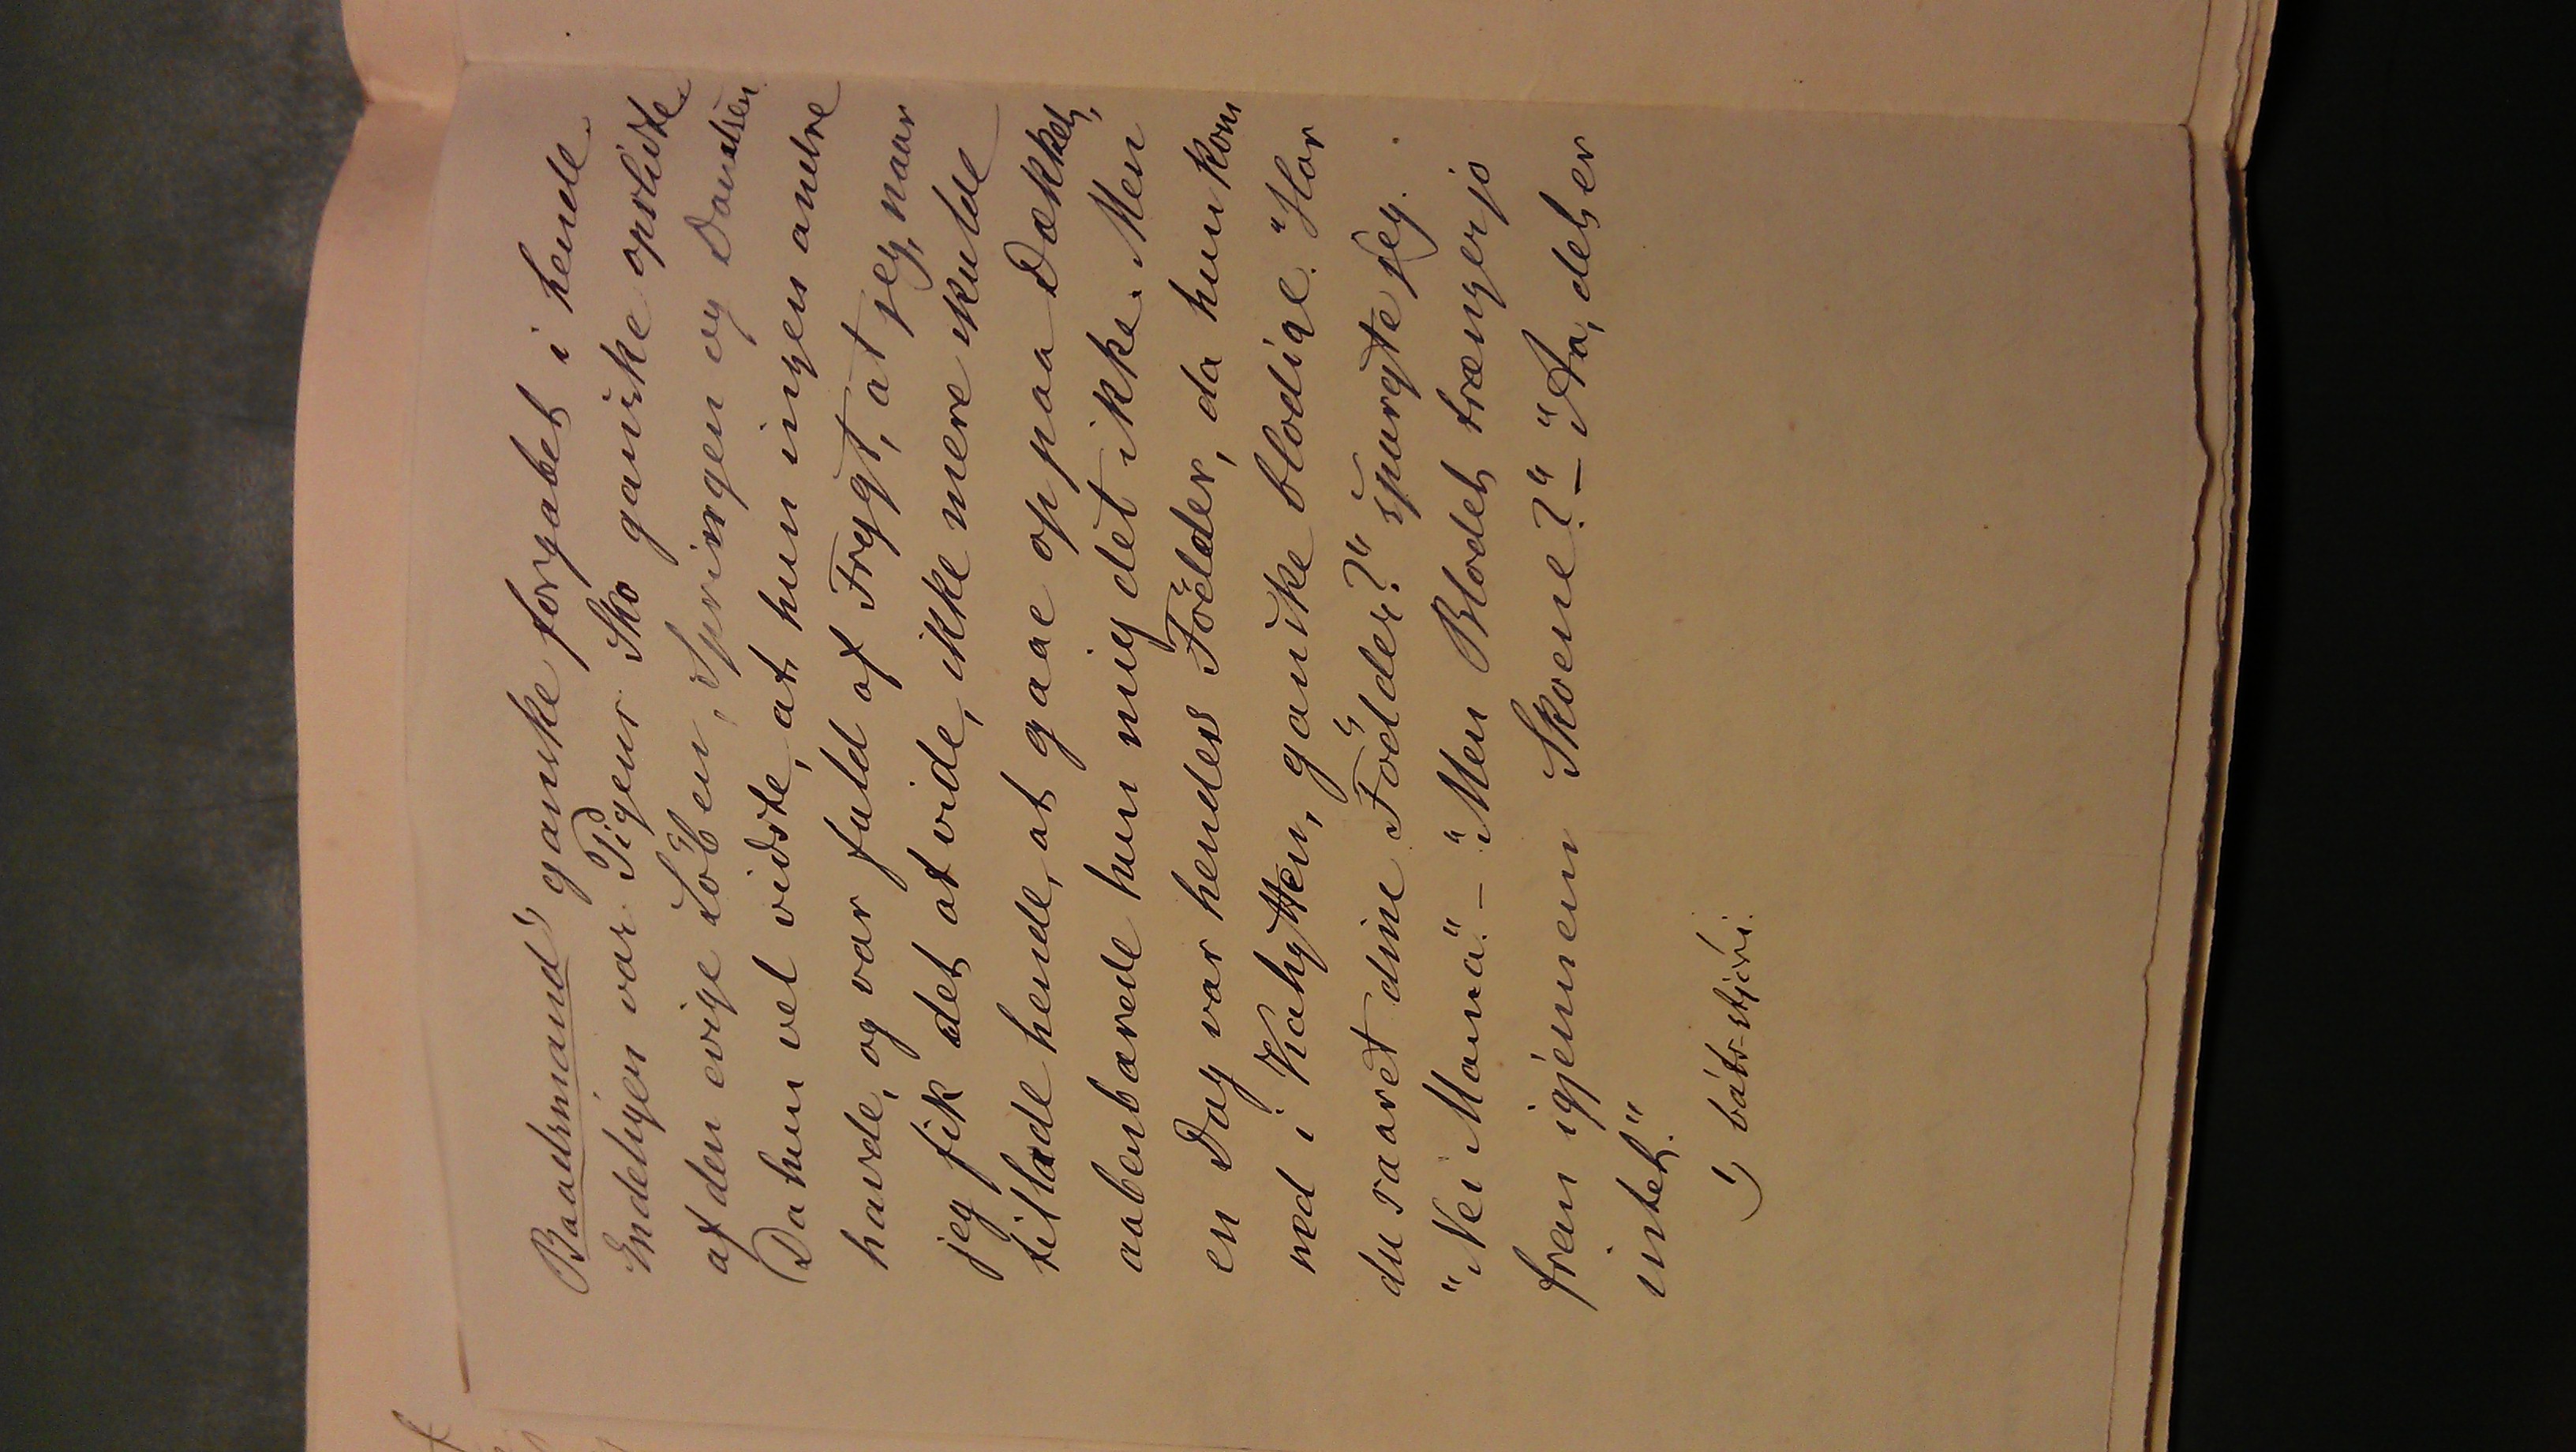 Baadsmand¹) ganske forgabet i hende.
Endeligen var Pigens Sko ganske opslidte
af den evige Löben, Springen og Dandsen.
Da hun vel vidste, at hun ingen andre
havde, og var fuld af Frygt, at jeg, naar
jeg fik det at vide, ikke mere skulde
tillade hende, at gaae op paa Dækket,
aabenbarede hun mig det ikke. Men
en Dag var hendes Födder, da hun kom
ned i Kahytten, ganske blodige. "Har
du saaret dine Födder?" spurgte jeg.
"Nei Mama" – "Men Blodet trænger jo
frem igjennem Skoene?" – "Aa, det er
intet."
¹) báts-stjóri.